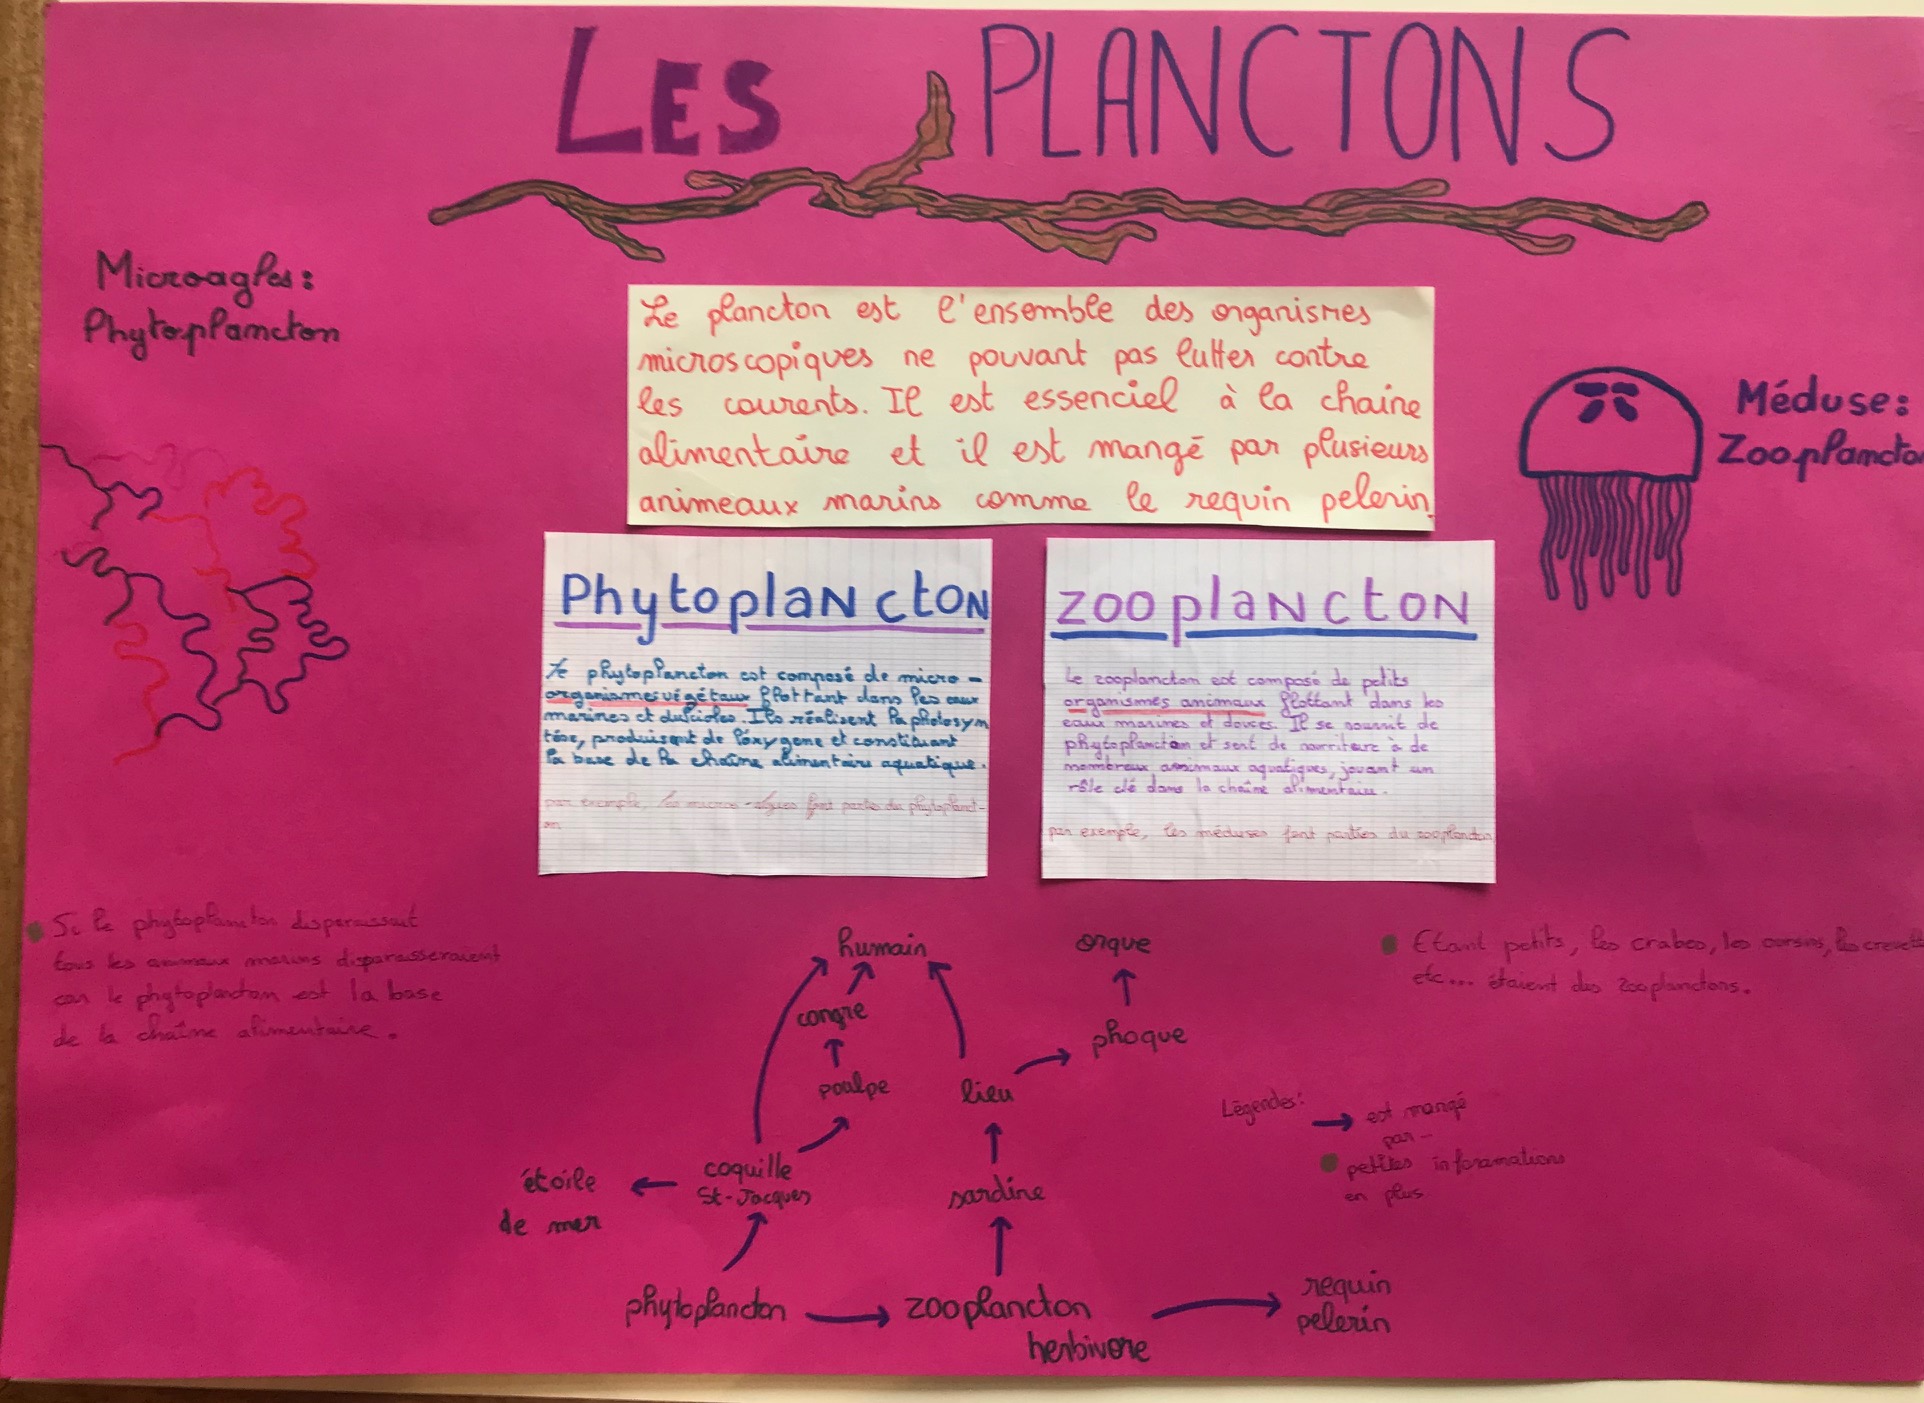 LES PLANCTONS
Microagles:
Phytoplancton
Le plancton est l'ensemble des organismes
microscopiques ne pouvant pas lutter contre
les courents. Il est essenciel à la chaine
alimentaire et il est mangé par plusieurs
animeaux marins comme le requin pelerin.
Méduse:
Zooplancto
Phytoplancton
Le phytoplancton est composé de micro-
organismes végétaux flottant dans les eaux
marines et dulcicoles. Ils réalisent la photosyn
tèse, produisent de l'oxygene et constituant
la base de la chaîne alimentaire aquatique.
par exemple, les micro-algues font partie du phytoplanct-
on
zooplancton
Le zooplancton est composé de petits
organismes animaux flottant dans les
eaux marines et douces. Il se nourrit de
phytoplancton et sert de nourriture à de
nombreux animaux aquatiques, jouant un
rôle clé dans la chaîne alimentaire.
par exemple, les méduses font parties du zooplancton
Si le phytoplancton disparaissait
tous les animaux marins disparaisseraient
car le phytoplancton est la base
de la chaîne alimentaire.
humain
orque
congre
phoque
poulpe
lieu
étoile
de mer
coquille
St-Jacques
sardine
phytoplancton
zooplancton
herbivore
requin
pelerin
Etant petits, les crabes, les oursins, les crevett
etc... étaient des zooplanctons.
Légendes:
est mangé
par
petites inforamations
en plus